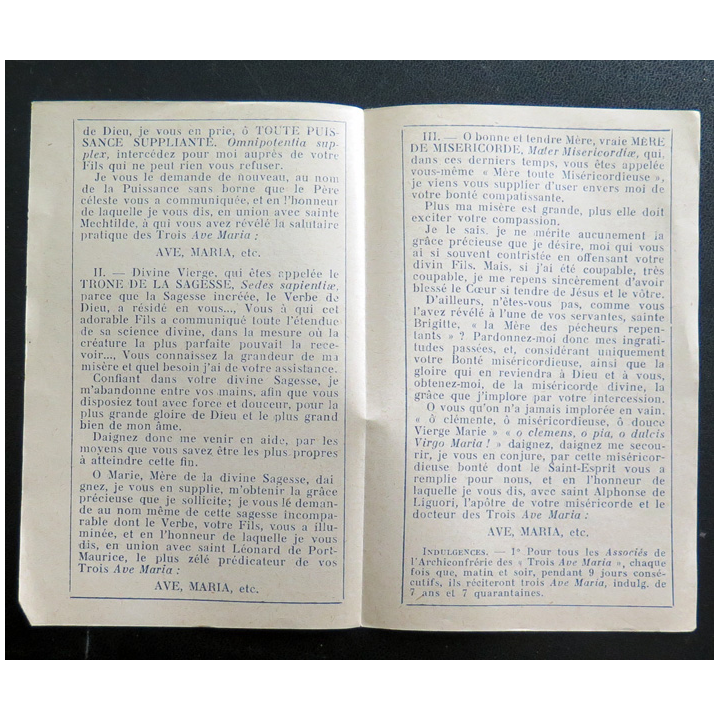 de Dieu, je vous en prie, ô TOUTE PUIS-
SANCE SUPPLIANTE. Omnipotentia sup-
plex, intercédez pour moi auprès de votre
Fils qui ne peut rien vous refuser.
Je vous le demande de nouveau, au nom
de la Puissance sans borne que le Père
céleste vous a communiquée, et en l'honneur
de laquelle je vous dis, en union avec sainte
Mechtilde, à qui vous avez révélé la salutaire
pratique des Trois Ave Maria :
AVE, MARIA, etc.
II. — Divine Vierge, qui êtes appelée le
TRONE DE LA SAGESSE, Sedes sapientiæ,
parce que la Sagesse incréée, le Verbe de
Dieu, a résidé en vous..., Vous à qui cet
adorable Fils a communiqué toute l'étendue
de sa science divine, dans la mesure où la
créature la plus parfaite pouvait la rece-
voir..., Vous connaissez la grandeur de ma
misère et quel besoin j'ai de votre assistance.
Confiant dans votre divine Sagesse, je
m'abandonne entre vos mains, afin que vous
disposiez tout avec force et douceur, pour la
plus grande gloire de Dieu et le plus grand
bien de mon âme.
Daignez donc me venir en aide, par les
moyens que vous savez être les plus propres
à atteindre cette fin.
O Marie, Mère de la divine Sagesse, dai
gnez, je vous en supplie, m'obtenir la grâce
précieuse que je sollicite; je vous lé deman-
de au nom même de cette sagesse incompa-
rable dont le Verbe, votre Fils, vous a illu-
minée, et en l'honneur de laquelle je vous
dis, en union avec saint Léonard de Port-
Maurice, le plus zélé prédicateur de vos
Trois Ave Maria :
AVE, MARIA, etc.
III. — O bonne et tendre Mère, vraie MERE
DE MISERICORDE, Mater Misericordiæ, qui,
dans ces derniers temps, vous êtes appelée
vous-même « Mère toute Miséricordieuse »,
je viens vous supplier d'user envers moi de
votre bonté compatissante.
Plus ma misère est grande, plus elle doit
exciter votre compassion.
Je le sais, je ne mérite aucunement la
grâce précieuse que je désire, moi qui vous
ai si souvent contristée en offensant votre
divin Fils. Mais, si j'ai été coupable, très
coupable, je me repens sincèrement d'avoir
blessé le Cœur si tendre de Jésus et le vôtre.
D'ailleurs, n'êtes-vous pas, comme vous
l'avez révélé à l'une de vos servantes, sainte
Brigitte, « la Mère des pécheurs repen-
tants » ? Pardonnez-moi donc mes ingrati-
tudes passées, et, considérant uniquement
votre Bonté miséricordieuse, ainsi que la
gloire qui en reviendra à Dieu et à vous,
obtenez-moi, de la miséricorde divine, la
grâce que j'implore par votre intercession.
O vous qu'on n'a jamais implorée en vain,
« ô clémente, ô miséricordieuse, ô douce
Vierge Marie » « o clemens, o pia, o dulcis
Virgo Maria ! » daignez, daignez me secou-
rir, je vous en conjure, par cette miséricor-
dieuse bonté dont le Saint-Esprit vous a
remplie pour nous, et en l'honneur de
laquelle je vous dis, avec saint Alphonse de
Liguori, l'apôtre de votre miséricorde et le
docteur des Trois Ave Maria :
AVE, MARIA, etc.
INDULGENCES. — 1° Pour tous les Associés de
l'Archiconfrérie des « Trois Ave Maria », chaque
fois que, matin et soir, pendant 9 jours consé-
cutifs, ils réciteront trois Ave Maria, indulg. de
7 ans et 7 quarantaines.